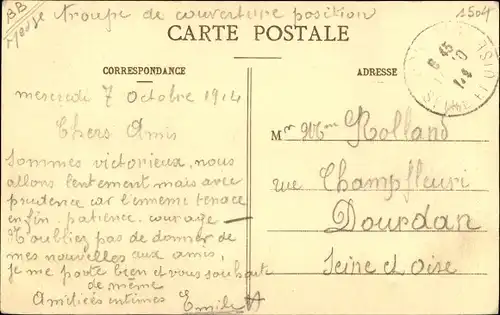 BB
troupe de couverture position
1504
CARTE POSTALE
CORRESPONDANCE
ADRESSE
mercredi 7 octobre 1914
Chers Amis
Sommes victorieux, nous
allons lentement mais avec
prudence car l'ennemie tenace
enfin. patience. courage
N'oubliez pas de donner de
mes nouvelles aux amis,
je me porte bien et vous souhaite
de même
Amitiées intimes Emile
Mr Mme Rolland
rue Champfleuri
Dourdan
Seine et Oise